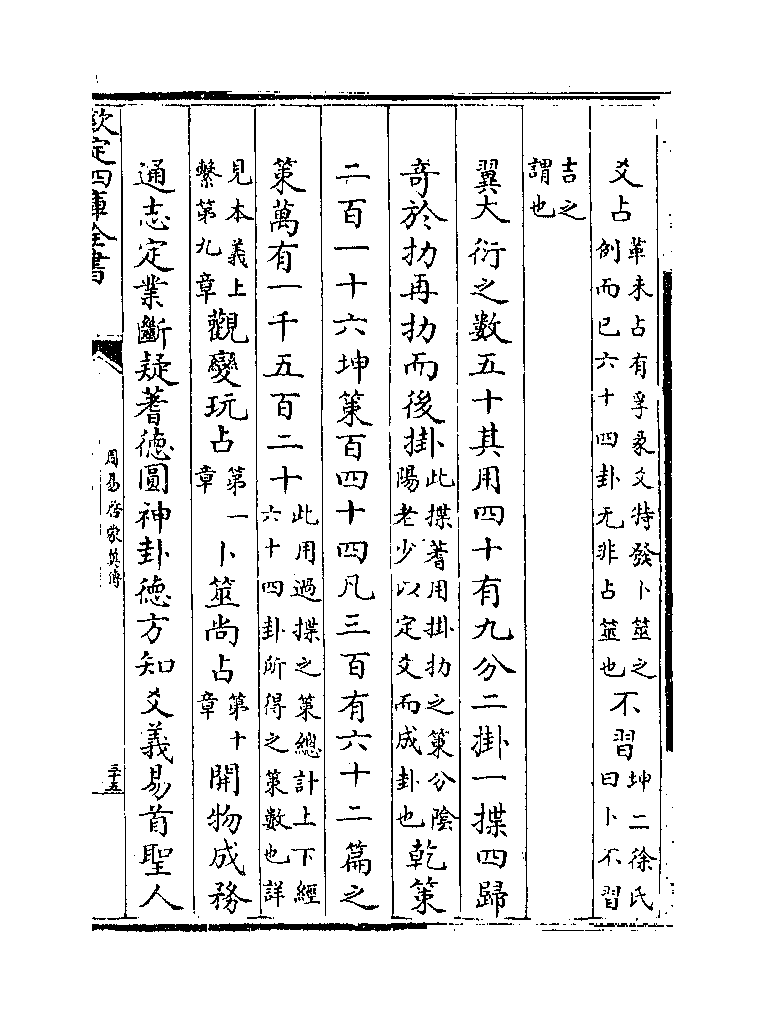 爻占革未占有孚彖爻特發卜筮之例而已六十四卦无非占筮也不習坤二徐氏曰卜不習
吉之謂也
翼大衍之數五十其用四十有九分二掛一揲四歸
奇於扐再扐而後掛此揲蓍用掛扐之策分陰陽老少以定爻而成卦也乾策
二百一十六坤策百四十四凡三百有六十二篇之
策萬有一千五百二十此用過揲之策總計上下經六十四卦所得之策數也詳
見本義上繫第九章觀變玩占第一章卜筮尚占第十章開物成務
通志定業斷疑蓍德圓神卦德方知爻義易首聖人
欽定四庫全書
周易啓蒙翼傳
三十五